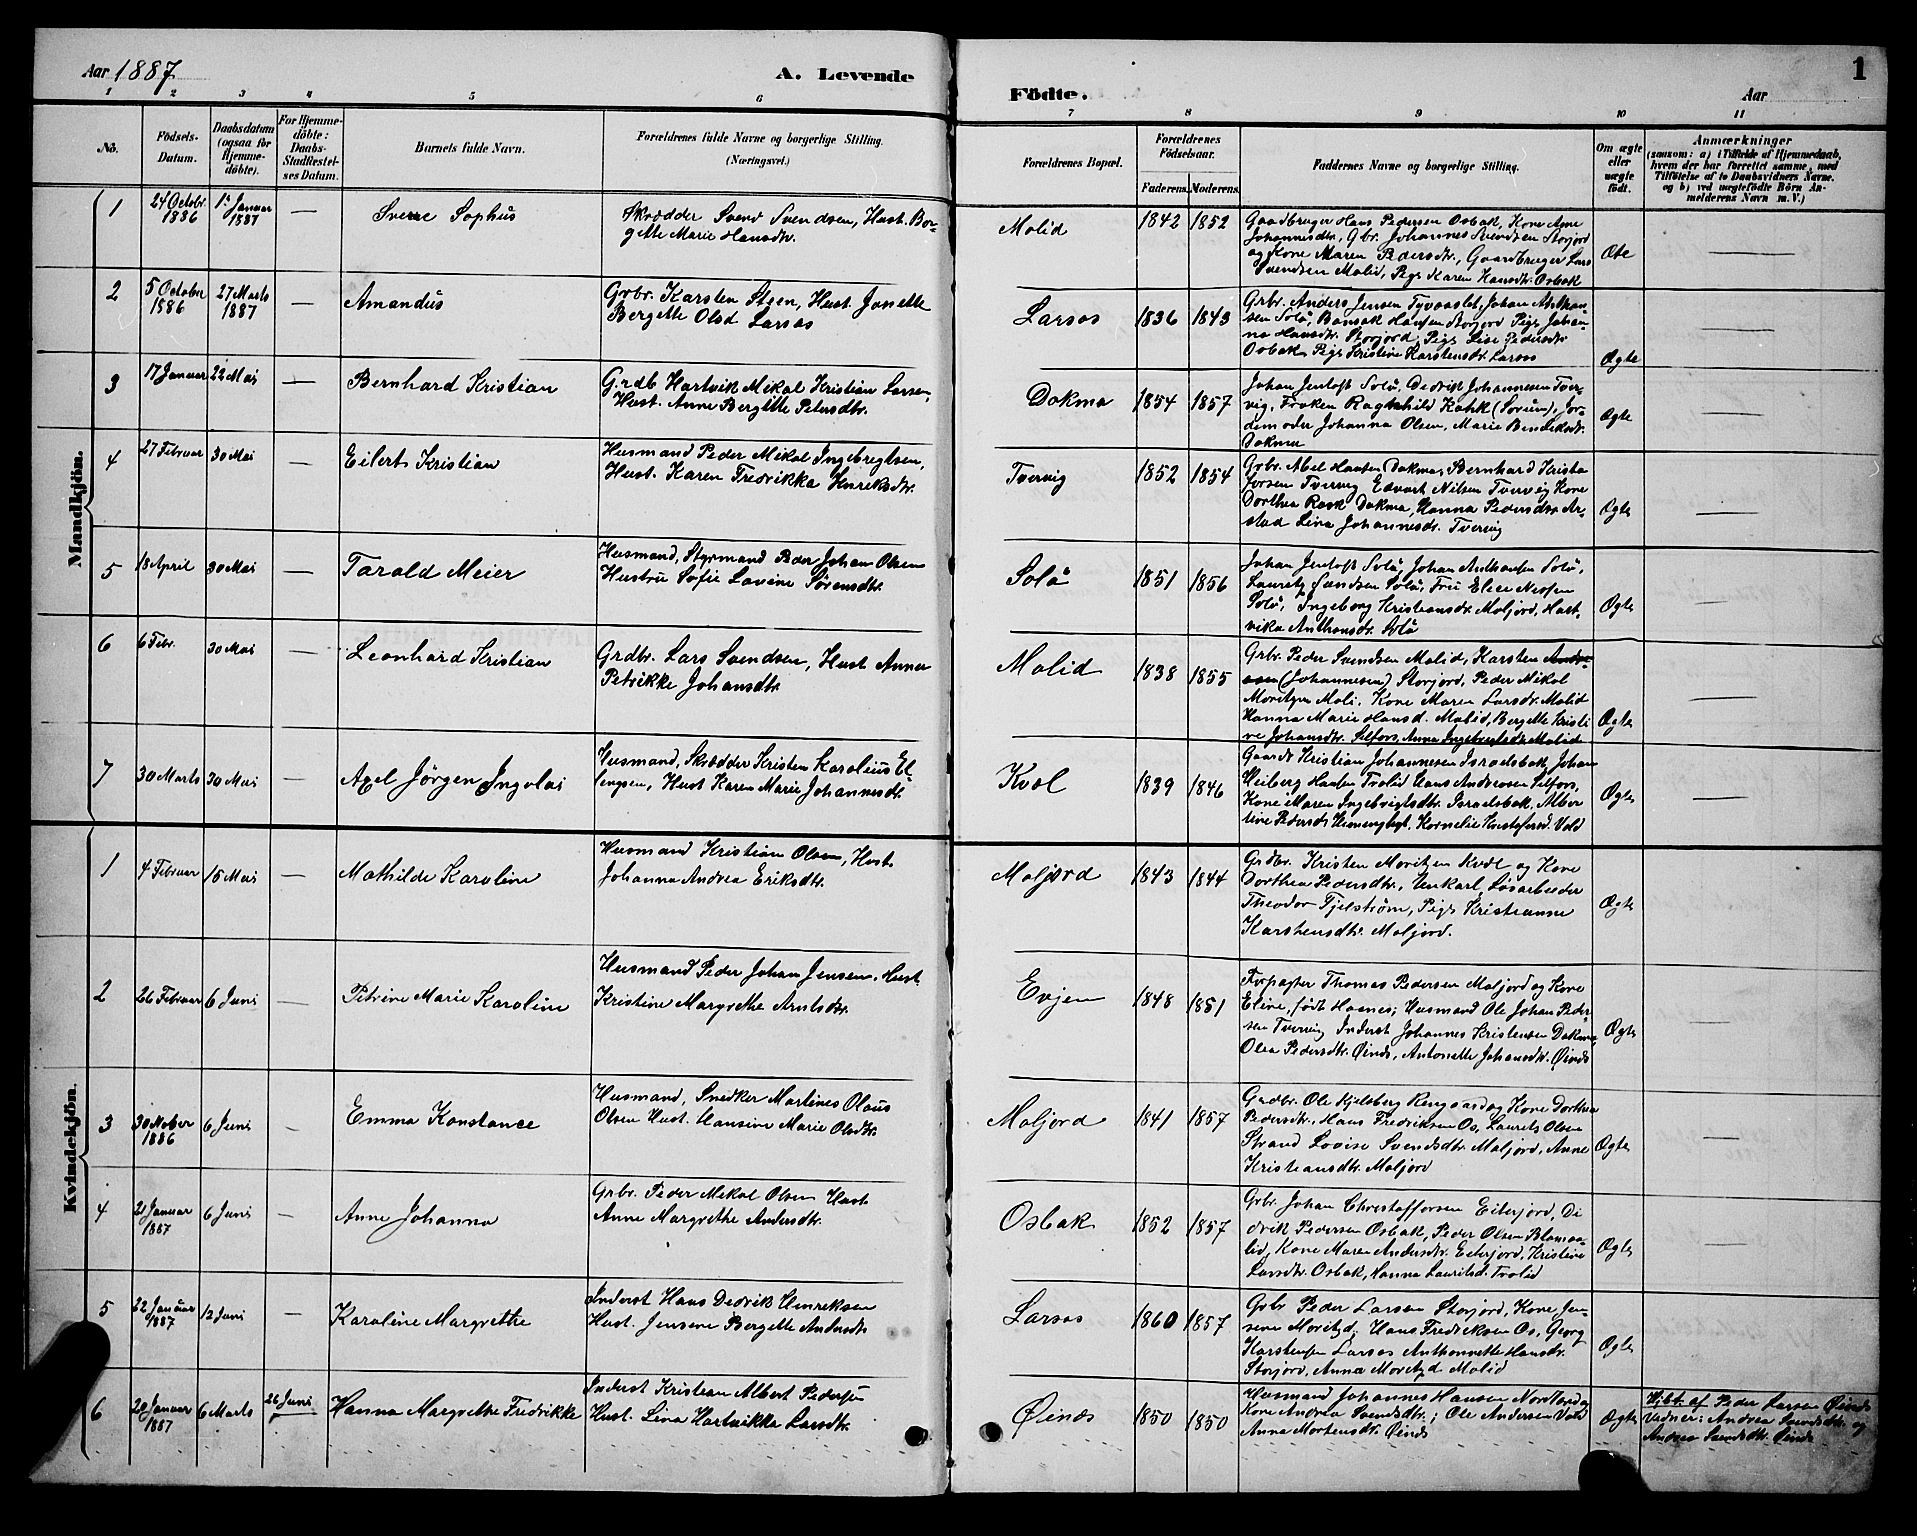 Aar 1887
A. Levende
Födte.
Aar
1
1 2 3 4 5 6 7 8 9 10 11
No.
Födsels-
Datum.
Daabsdatum
(ogsaa for
Hjemme-
döbte).
For Hjemme-
döbte:
Daabs-
Stadfæstel-
ses Datum.
Barnets fulde Navn.
Forældrenes fulde Navne og borgerlige Stilling.
(Næringsvei.)
Forældrenes Bopæl.
Forældrenes
Födselsaar.
Faderens. Moderens.
Faddernes Navne og borgerlige Stilling.
Om ægte
eller
uægte
födt.
Anmærkninger
(saasom: a) i Tilfælde af Hjemmedaab,
hvem der har forrettet samme, med
Tilföielse af to Daabsvidners Navne,
og b) ved uægtefödte Börn An-
melderens Navn m. V.)
Mandkjön.
1
24 Octobr.
1886
1 Januar
1887
—
Sverre Sophus
Skrædder Svend Svendsen, Hust. Bo-
gette Marie Hansdtr.
Molid
1842 1852
Gaardbruger Hans Pedersen Osbak, Kone Ane
Johannesdtr, Gbr. Johannes Svendsen Storjord
og Kone Maren Pedersdtr, Gaardbruger Lars
Svendsen Molid, Pige Karen Hansdtr. Osbak
—
2
5 October
1886
27 Marts
1887
—
Amandus
Grbr. Karsten Steen, Hust. Jonette
Bergette Olsd Larsos
Larsos
1836 1843
Grbr. Anders Jensen Tyvaaslet, Johan Anthon-
sen Solö, Hansen Storjord Pige Johan-
na Hansdtr. Storjord, Pige Lise Pedersdtr
Osbak, Pige Kristine Karstensdtr. Larsos
Ægte
—
3
17 Januar
22 Mai
—
Bernhard Kristian
Grdb Hartvik Mikal Kristian Larsen,
Hust. Anne Bergitte Petersdtr.
Dokmo
1854 1857
Johan Jentoft Solö, Dedrik Johannesen Tver-
vig, Frøken Ragnhild Kahk (Sorum), Jor-
demoder Johanna Olsen, Marie Bendiksdtr.
Dokmo
Ægte
—
4
27 Februar
30 Mai
—
Eilert Kristian
Husmand Peder Mikal Ingebregtsen,
Hust. Karen Fredrikka Henriksdtr.
Tvervig
1852 1854
Grbr. Abel Hansen Dokmo, Bernhard Krista
forsen Tvervig Edvart Nilsen Tvervig Kone
Dorthea Rask Dokmo, Hanna Pedersdtr Ar-
stad Lina Johannesdtr. Tvervig
Ægte
—
5
18 April
30 Mai
—
Tarald Meier
Husmand, Styrmand Peder Johan Olsen
Hustru Sofie Lovine Sörensdtr.
Solö
1851 1856
Johan Jentoft Solö, Johan Anthonsen Solö,
Lauretz Svendsen Solö, Fru Elen Nessen
Solö, Ingeborg Kristiansdtr Moljord, Hart-
vika Anthonsdtr. Solö
Ægte
—
6
6 Febr.
30 Mai
—
Leonhard Kristian
Grdbr. Lars Svendsen, Hust Anna
Petrikke Johansdtr.
Molid
1838 1855
Grbr. Peder Svendsen Molid, Karsten Andre-
asen (Johannesen) Storjord, Peder Mikal
Moritzen Moli. Kone Maren Larsdtr. Molid
Hanna Marie Hansd. Molid, Bergette Kristi
ne Johansdtr. Selfors, Anna Ingebregtsdtr. Molid
Ægte
—
7
30 Marts
30 Mai
—
Axel Jörgen Ingolai
Husmand, Skrædder Kristen Karolius El-
lengsen, Hust Karen Marie Johannesdtr.
Kvol
1839 1846
Gaardb Kristian Johannesen Israelsbak, Johan
Heiberg Hansen Trolid Hans Andersen Selfors,
Kone Maren Ingebrigtsdtr. Israelsbak, Alber
tine Pedersdtr, Kornelie Kristofersd. Vold
Ægte
—
Kvindekjön.
1
4 Februar
15 Mai
—
Mathilde Karoline
Husmand Kristian Olsen, Hust.
Johanna Andrea Eriksdtr.
Moljord
1843 1844
Grdbr. Kristen Moritzen Kvol og Kone
Dorthea Pedersdtr., Unkarl, Løsarbeider
Theodor Fjelström, Pige Kristianne
Karstensdtr. Moljord.
Ægte
—
2
26 Februar
6 Juni
—
Petrine Marie Karoline
Husmand Peder Johan Jensen. Hust
Kristine Margrethe Arntsdtr.
Evjen
1848 1851
Forpagter Thomas Pedersen Moljord og Kone
Eline, født Hasnes; Husmand Ole Johan Peder-
sen Tvervig Inderst Johannes Kristensen Dokmo,
Olea Pedersdtr. Øines, Antonette Johansdtr. Øines
Ægte
—
3
30 October
1886
6 Juni
—
Emma Konstance
Husmand, Snedker Martines Olaus
Olsen Hust. Hansine Marie Olsdtr.
Moljord
1841 1857
Grdbr. Ole Kjelsberg Rengaard og Kone Dorthea
Pedersdtr., Hans Fredriksen Os, Laurets Olsen
Strand Lovise Svendsdtr. Moljord, Anne
Kristiansdtr. Moljord
Ægte
—
4
21 Januar
1887
6 Juni
—
Anne Johanna
Grbr. Peder Mikal Olsen Hust
Anne Margrethe Andersdtr.
Osbak
1852 1857
Grbr. Johan Christoffersen Eiterjord, Di
drik Pedersen Osbak, Peder Olsen Blomaa-
lid, Kone Maren Andersdtr. Eiterjord, Kristine
Larsdtr. Osbak, Hanna Lauritsd. Trolid
Ægte
—
5
22 Januar
1887
12 Juni
—
Karoline Margrethe
Inderst Hans Dedrik Henreksen
Hust. Jensine Bergette Andersdtr
Larsos
1860 1857
Grbr Peder Larsen Storjord, Kone Jen-
sine Moritzd; Hans Fredriksen Os, Georg
Karstensen Larsos Anthonnette Hansdtr.
Storjord, Anna Moritzd Molid
Ægte
6
20 Januar
1887
6 Marts
26 Juni
Hanna Margrethe Fredrikke
Inderst Kristian Albert Pedersen
Hust. Lina Hartvikke Larsdtr.
Øines
1850 1850
Husmand Johannes Hansen Nordland og
Kone Andrea Svendsdtr.; Ole Andersen Vold
Anna Mortensdtr. Øines
Ægte
Hjdt. af Peder Larsen Øines
Vidner: Andrea Svendsdtr. og
Andrea Svendsdtr. Øines